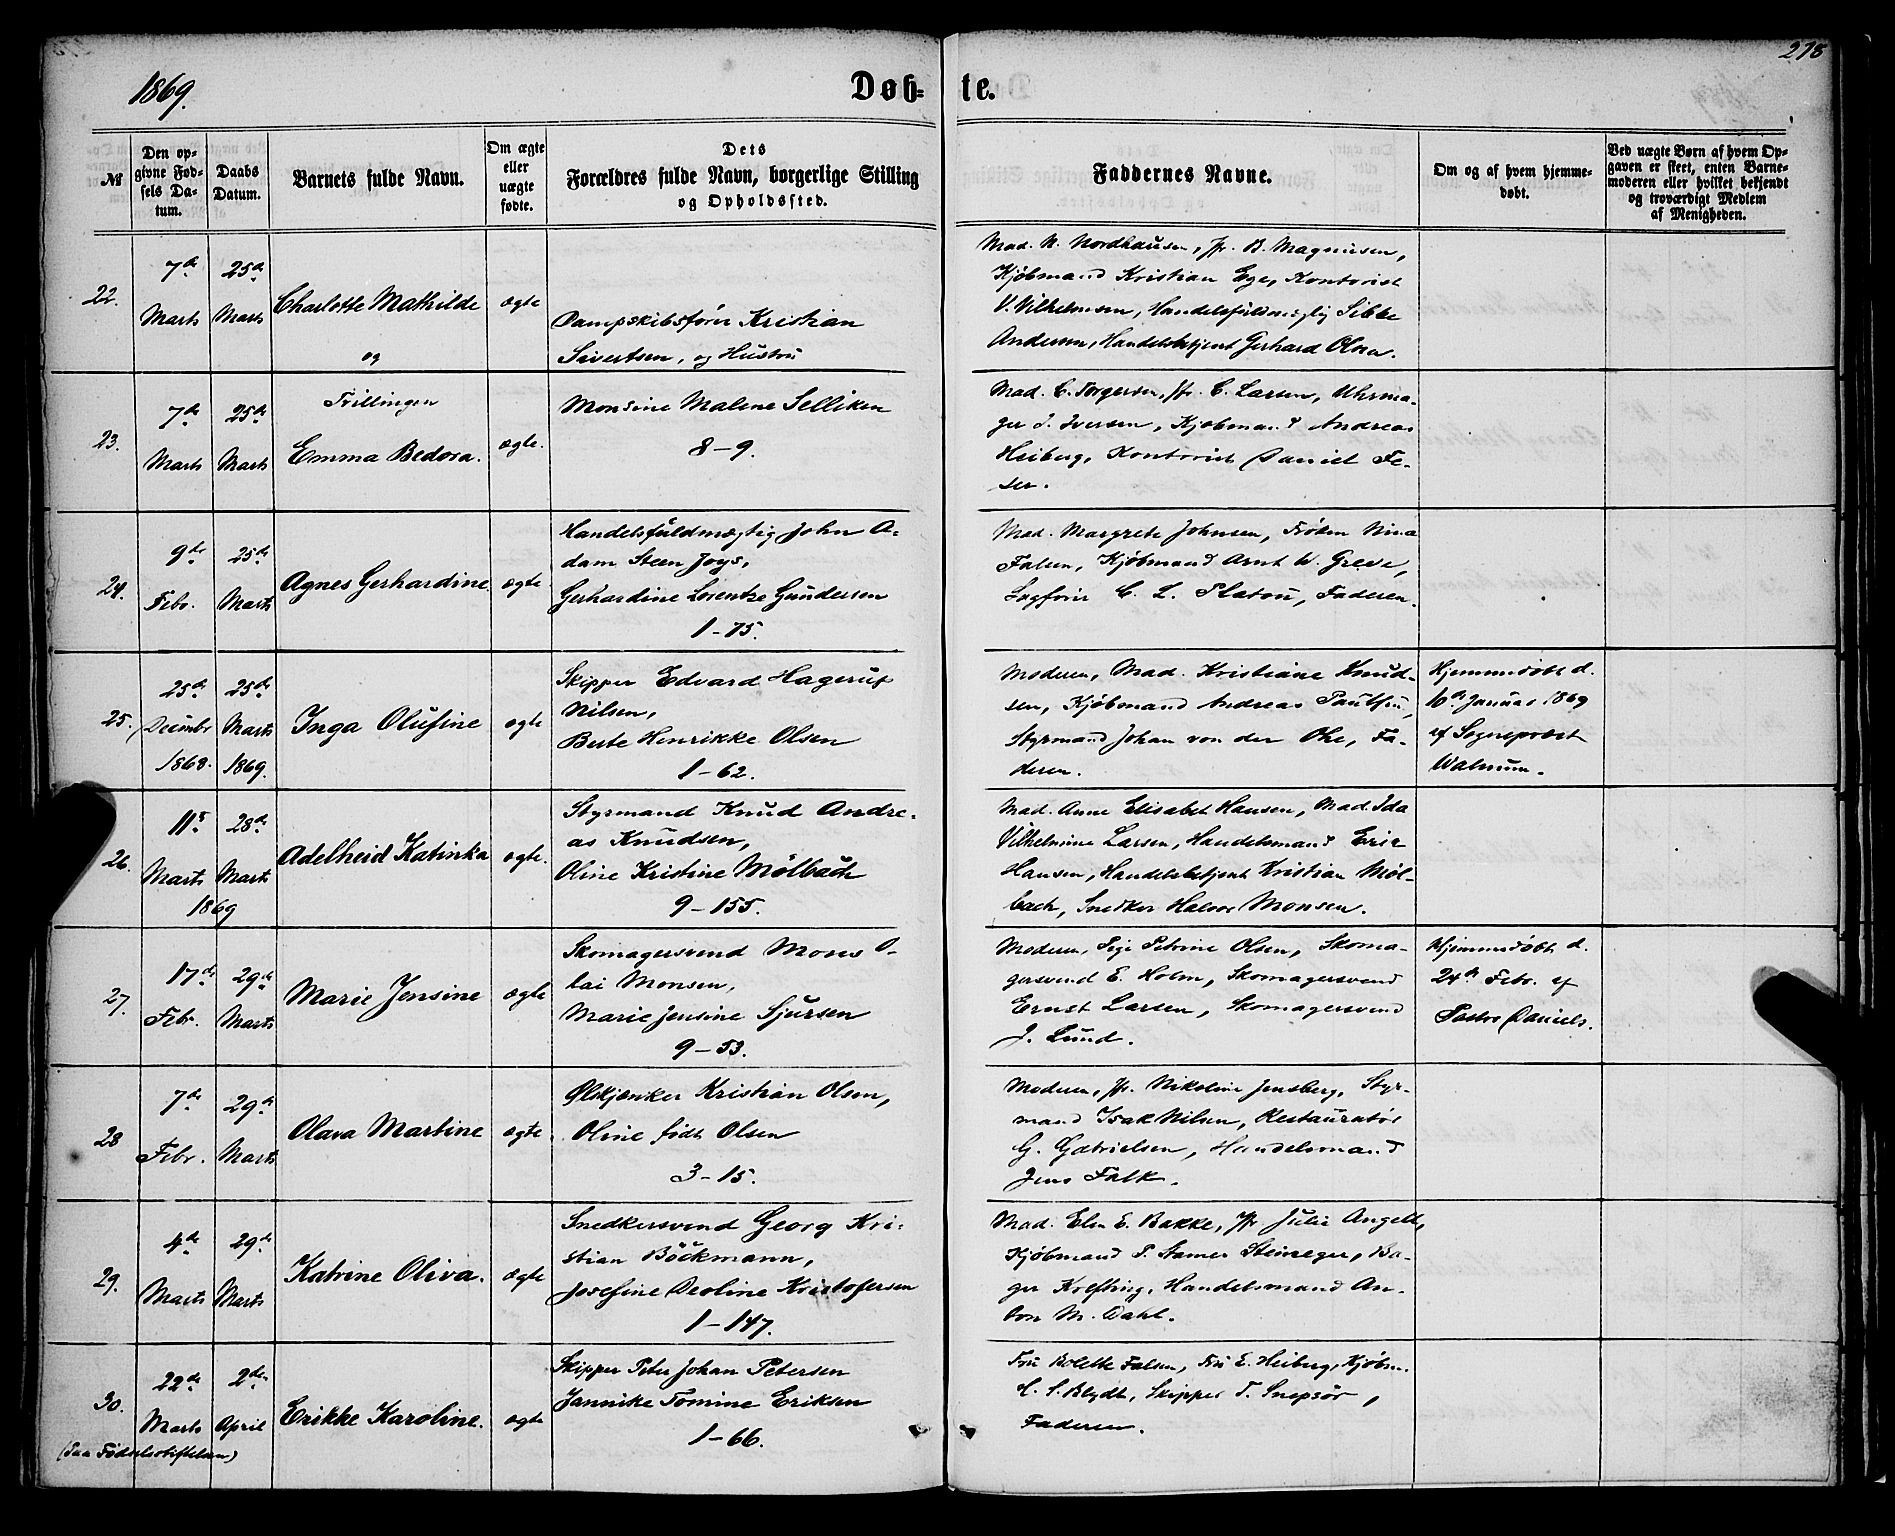 1869.
Døb-
te.
278
№
Den op-
givne Fød-
sels Da-
tum.
Daabs
Datum.
Barnets fulde Navn.
Om ægte
eller
uægte
fødte.
Dets
Forældres fulde Navn, borgerlige Stilling
og Opholdssted.
Faddernes Navne.
Om og af hvem hjemme-
døbt.
Ved uægte Børn af hvem Op-
gaven er skeet, enten Barne-
moderen eller hvilket bekjendt
og troværdigt Medlem
af Menigheden.
22.
7de
Marts
25de
Marts
Charlotte Mathilde
og
ægte
Dampskibsfører Kristian
Sivertsen, og Hustru
Mad. N. Nordhausen, Jfr. B. Magnusen,
Kjøbmand Kristian Ege, Kontorist
V. Vilhelmsen, Handelsfuldmægtig Sibbe
Andersen, Handelsbetjent Gerhard Olsen.
23.
7de
Marts
25de
Marts
Tvillingen
Emma Bedora.
ægte.
Monsine Malene Selliken
8-9.
Mad. C. Torgersen, Jfr. C. Larsen, Uhrma-
ger J. Iversen, Kjøbmand Andreas
Heiberg, Kontorist Daniel Fe-
ser.
24.
9de
Febr.
25de
Marts
Agnes Gerhardine
ægte
Handelsfuldmægtig John A-
dam Steen Joys,
Gerhardine Lorentze Gundersen
1-75.
Mad. Margrete Johnsen, Frøken Nina
Falsen, Kjøbmand Arnt W. Greve,
Sagfører C. L. Platou, Faderen.
25.
25de
Decembr
1868.
25de
Marts
1869.
Inga Olufine
ægte
Skipper Edvard Hagerup
Nilsen,
Berte Henrikke Olsen
1-62.
Moderen, Mad. Kristiane Knud-
sen, Kjøbmand Andreas Paulsen,
Styrmand Johan von der Ohe, Fa-
deren.
Hjemmedøbt d.
10de Januar 1869
af Sognepræst
Walnum.
26.
11te
Marts
28de
Marts
1869
Adelheid Katinka
ægte.
Styrmand Knud Andre-
as Knudsen,
Oline Kristine Mølbach
9-155.
Mad. Anne Elisabet Hansen, Mad. Ida
Vilhelmine Larsen, Handelsmand Eric
Hansen, Handelsbetjent Kristian Møl-
bach, Snedker Halvor Monsen.
27.
17de
Febr.
29de
Marts
Marie Jensine
ægte
Skomagersvend Mons O-
lai Monsen,
Marie Jensine Sjursen
9-53.
Moderen, Pige Petrine Olsen, Skoma-
gersvend E. Holm, Skomagersvend
Ernst Larsen, Skomagersvend
J. Lund.
Hjemmedøbt d.
24de Febr. af
Pastor Daniels.
28
7de
Febr.
29de
Marts
Olava Martine
ægte.
Ølskjænker Kristian Olsen,
Oline født Olsen
3-15.
Moderen, Jfr. Nikoline Jensberg, Styr-
mand Isak Nilsen, Restauratør
G. Gabrielsen, Handelsmand
Jens Falk.
29.
4de
Marts
29de
Marts
Katrine Oliva.
ægte
Snedkersvend Georg Kri-
stian Böckmann,
Josefine Deoline Kristofersen
1-147.
Mad. Elen E. Bakke, Jfr. Julie Angell,
Kjøbmand P. Stamer Steineger, Ba-
ger Kolfting, Handelsmand An-
ton M. Dahl.
30.
22de
Marts
2den
April
(Paa Fødselsstiftelsen)
Erikke Karoline.
ægte
Skipper Peter Johan Petersen
Jannike Tomine Eriksen
1-66.
Fru Bolette Falsen, Fru E. Heiberg, Kjøbm.
H. S. Blydt, Skipper T. Snepsør,
Faderen.